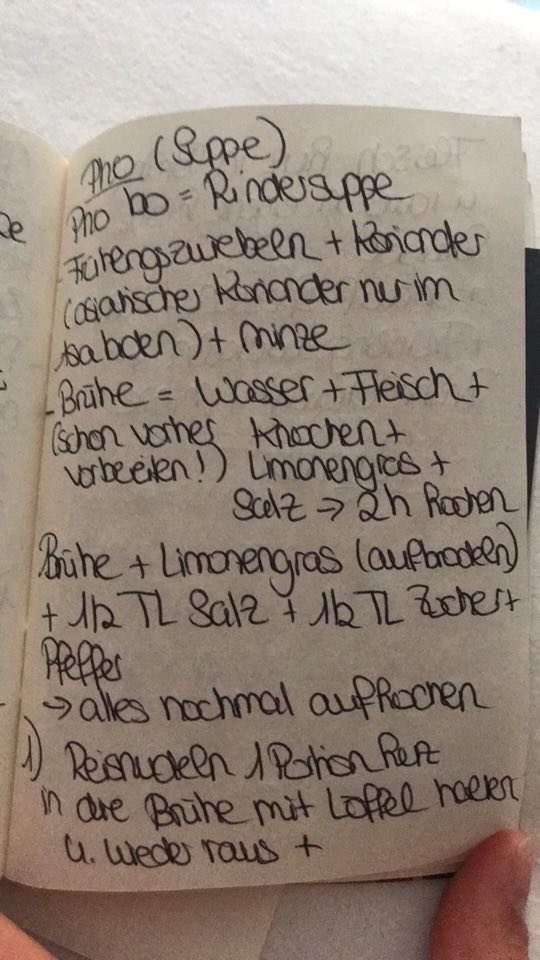 Pho (Suppe)
Pho bo = Rindersuppe
- Früh­lengszwiebeln + Koriander
(asiatischer Koriander nur im
Asiabden) + Minze
- Brühe = Wasser + Fleisch +
(schon vorher Knochen +
vorbereiten!) Limonengras +
Salz → 2h kochen
Brühe + Limonengras (aufbrodeln)
+ 1/2 TL Salz + 1/2 TL Zucker +
Pfeffer
→ alles nochmal aufkochen
1) Reisnudeln 1 Portion
in die Brühe mit Löffel
u. wieder raus +